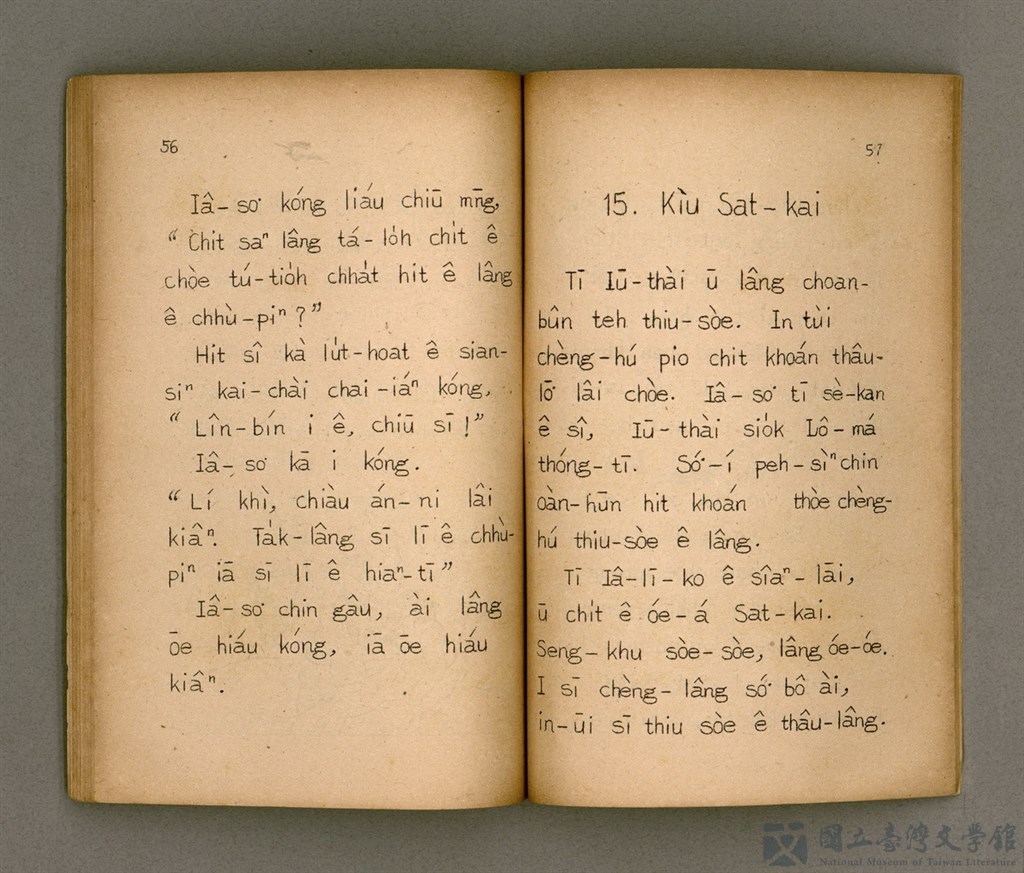 56
Iâ-so͘ kóng liáu chiū mn̄g,
“Chit saⁿ lâng tá-lo̍h chi̍t ê
chòe tú-tio̍h chha̍t hit ê lâng
ê chhù-piⁿ?”
Hit sî kà lu̍t-hoat ê sian-
siⁿ kai-chài chai-iáⁿ kóng,
“Lîn-bín i ê, chiū sī!”
Iâ-so͘ kā i kóng.
“Lí khì, chiàu án-ni lâi
kiâⁿ. Ta̍k-lâng sī lī ê chhù-
piⁿ iā sī lī ê hiaⁿ-tī”
Iâ-so͘ chin gâu, ài lâng
ōe hiáu kóng, iā ōe hiáu
kiâⁿ.
57
15. Kìu Sat-kai
Tī Iū-thài ū lâng choan-
bûn teh thiu-sòe. In tùi
chèng-hú pio chit khoán thâu-
lō͘ lâi chòe. Iâ-so͘ tī sè-kan
ê sî, Iū-thài sio̍k Lô-má
thóng-tī. Só͘-í peh-sìⁿ chin
oàn-hūn hit khoán thòe chèng-
hú thiu-sòe ê lâng.
Tī Iâ-lī-ko ê sîaⁿ-lāi,
ū chi̍t ê óe-á Sat-kai.
Seng-khu sòe-sòe, lâng óe-óe.
I sī chèng-lâng só͘ bô ài,
in-ūi sī thiu sòe ê thâu-lâng.
國立臺灣文學館
National Museum of Taiwan Literature